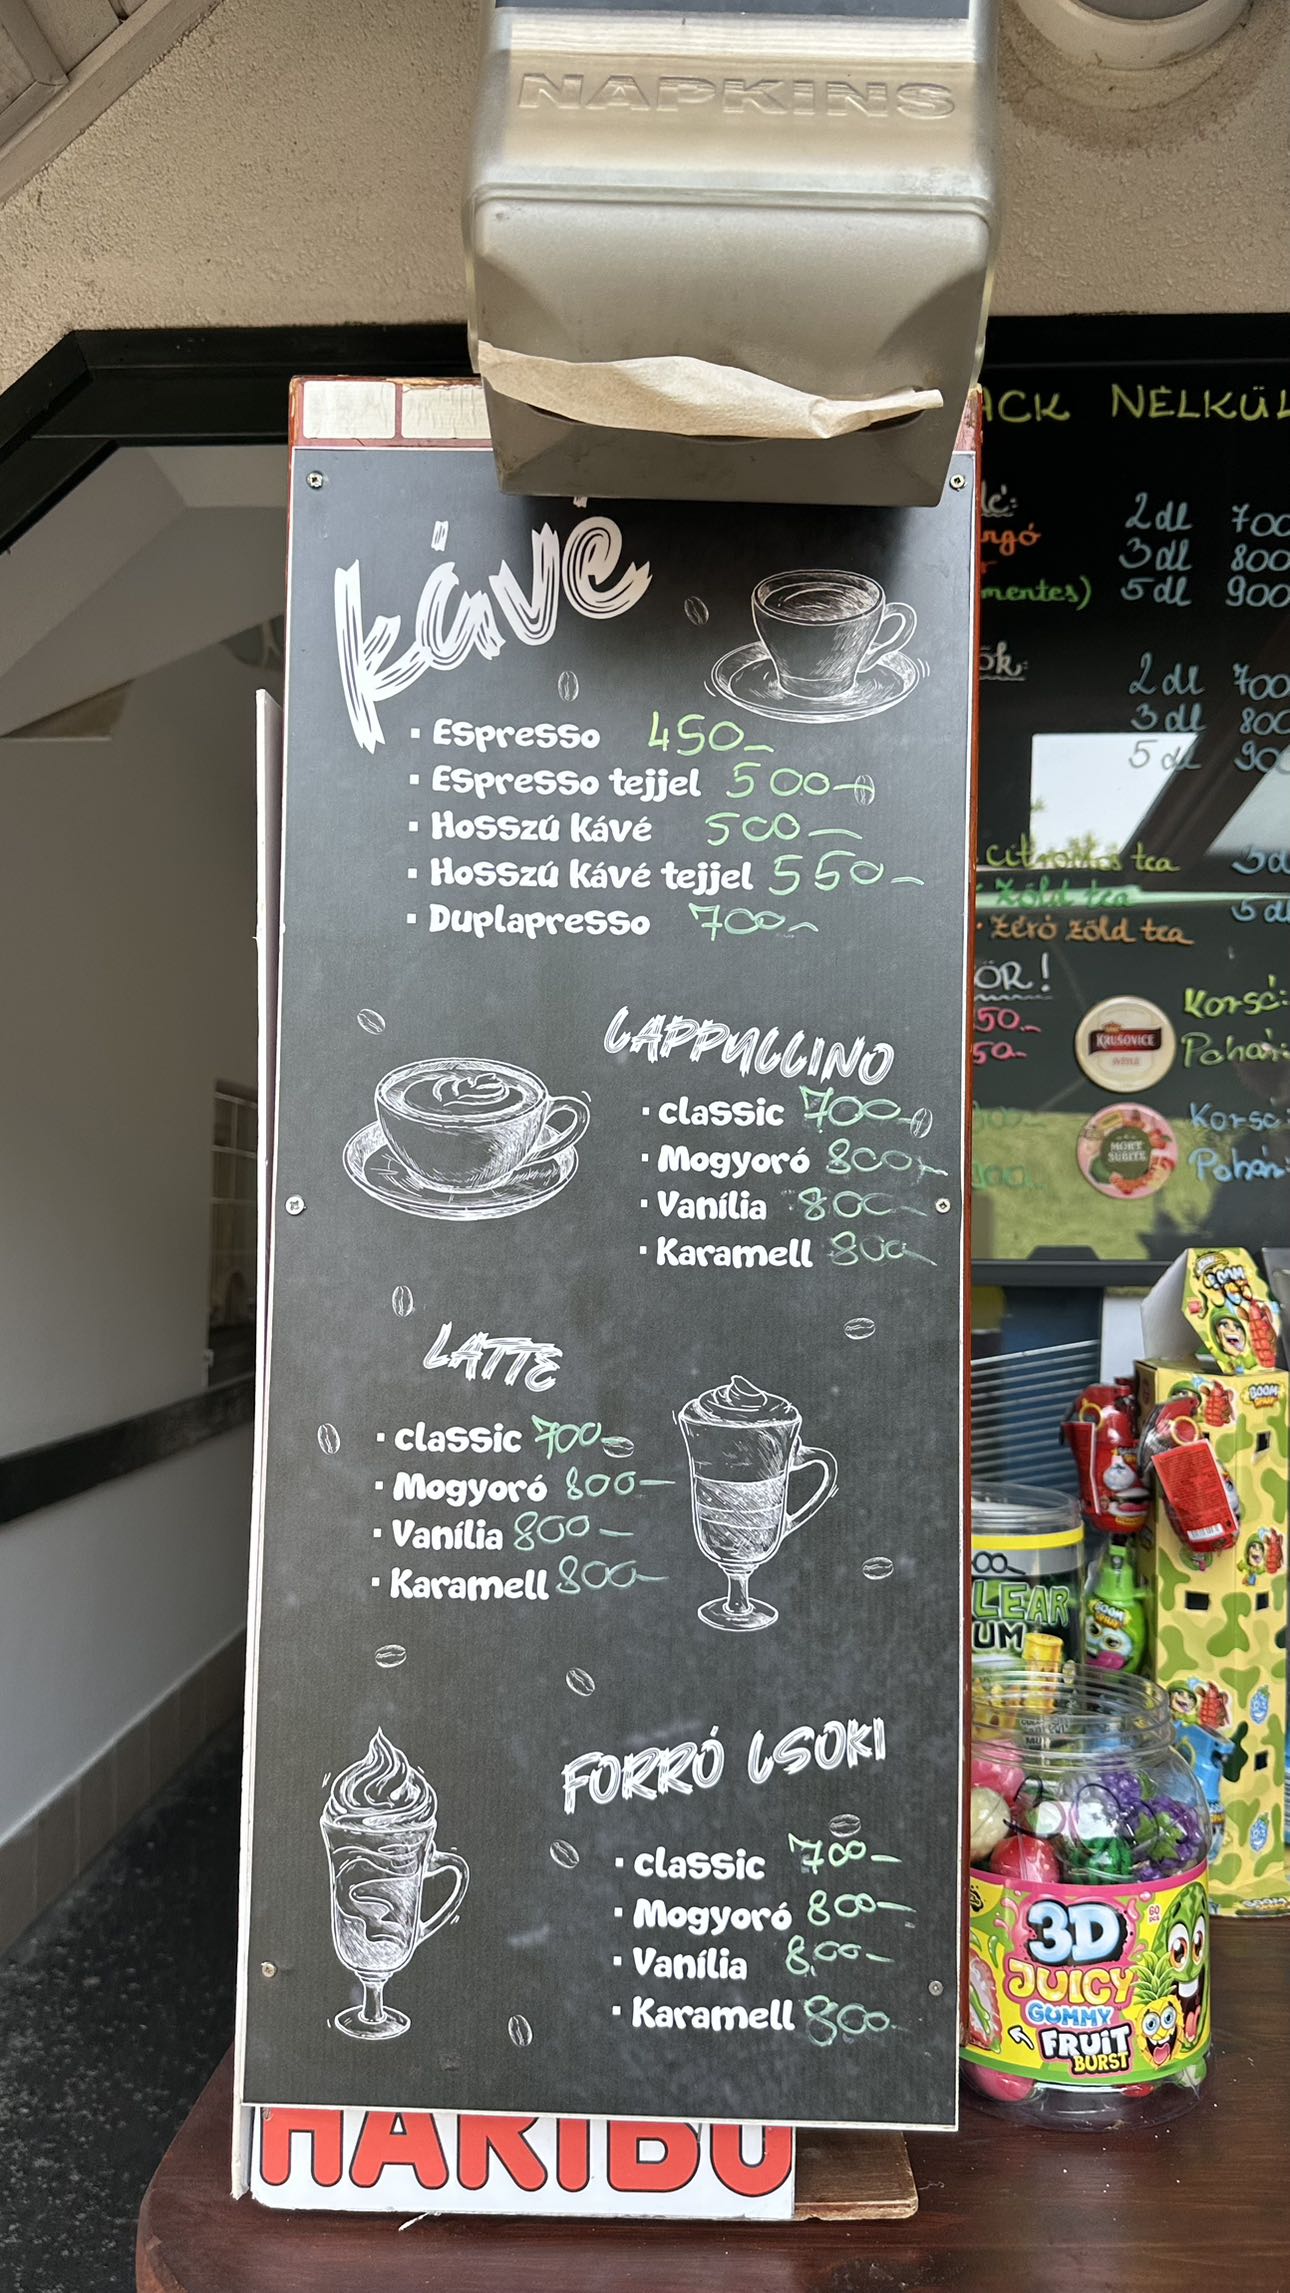 NAPKINS
kávé
▪ Espresso 450-
▪ Espresso tejjel 500-
▪ Hosszú kávé 500-
▪ Hosszú kávé tejjel 550-
▪ Duplapresso 700-
CAPPUCCINO
▪ classic 700-
▪ Mogyoró 800-
▪ Vanília 800-
▪ Karamell 800-
LATTE
▪ classic 700-
▪ Mogyoró 800-
▪ Vanília 800-
▪ Karamell 800-
FORRÓ CSOKI
▪ classic 700-
▪ Mogyoró 800-
▪ Vanília 800-
▪ Karamell 800-
HARIBO
NÉLKÜL
2 dl 700
3 dl 800
mentes) 5 dl 900
2 dl 700
3 dl 800
5 dl
citromos tea
zöld tea
zéró zöld tea 5 dl
KRUŠOVICE
Korsó:
Pohár:
MORT SUBITE
Korsó:
Pohár:
BOOM
3D
JUICY
GUMMY
FRUIT
BURST
60